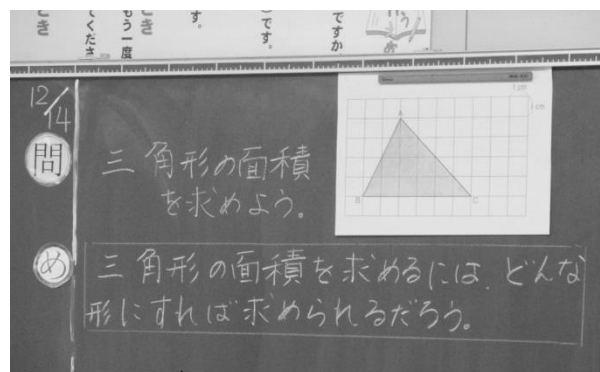 とき
てくださ
もう一度
とき
す。
です。
ですか
12/14
問
三角形の面積
を求めよう。
1cm
1cm
A
B
C
め
三角形の面積を求めるには、どんな
形にすれば求められるだろう。